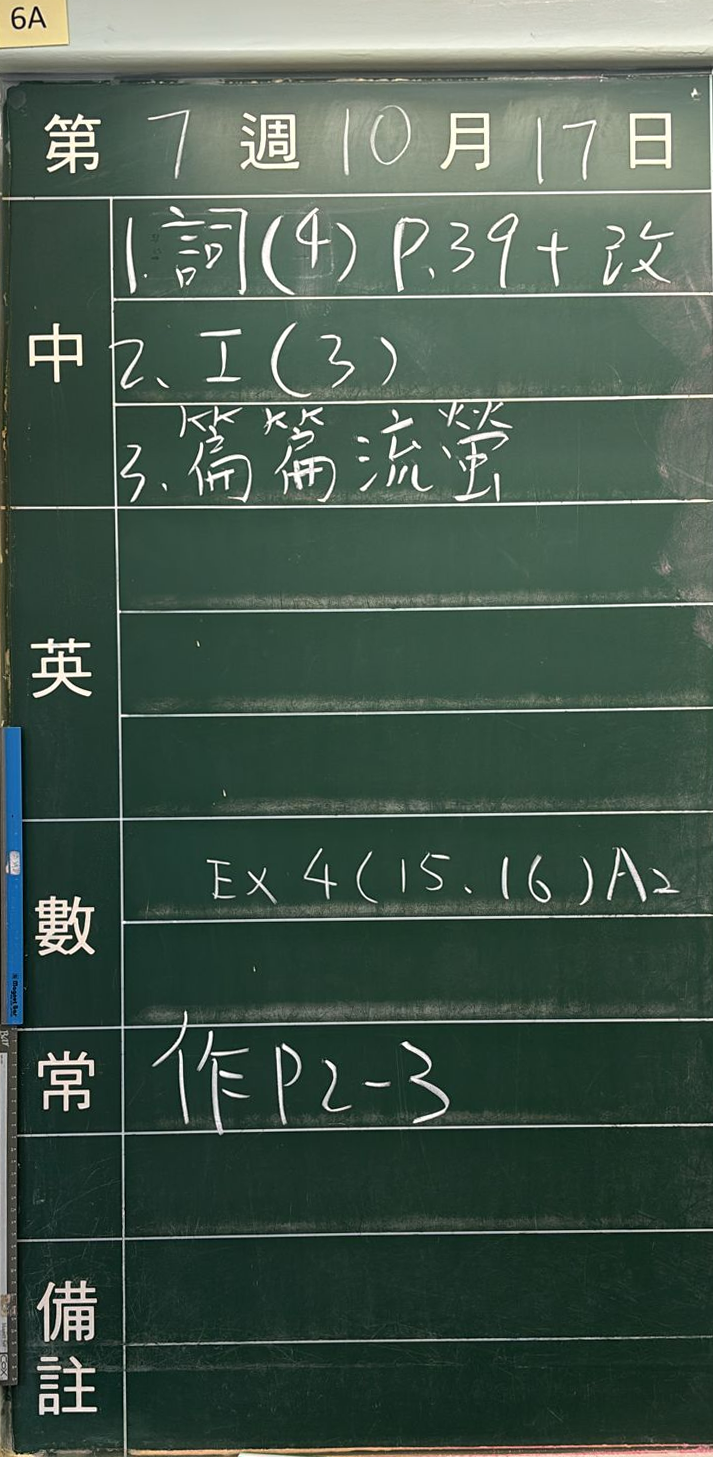 6A
第 7 週 10 月 17 日
中
1. 詞(4) P.39 + 改
2、工(3)
3、篇篇流螢
英
數
Ex 4 (15、16) A2
常
作P2-3
備註